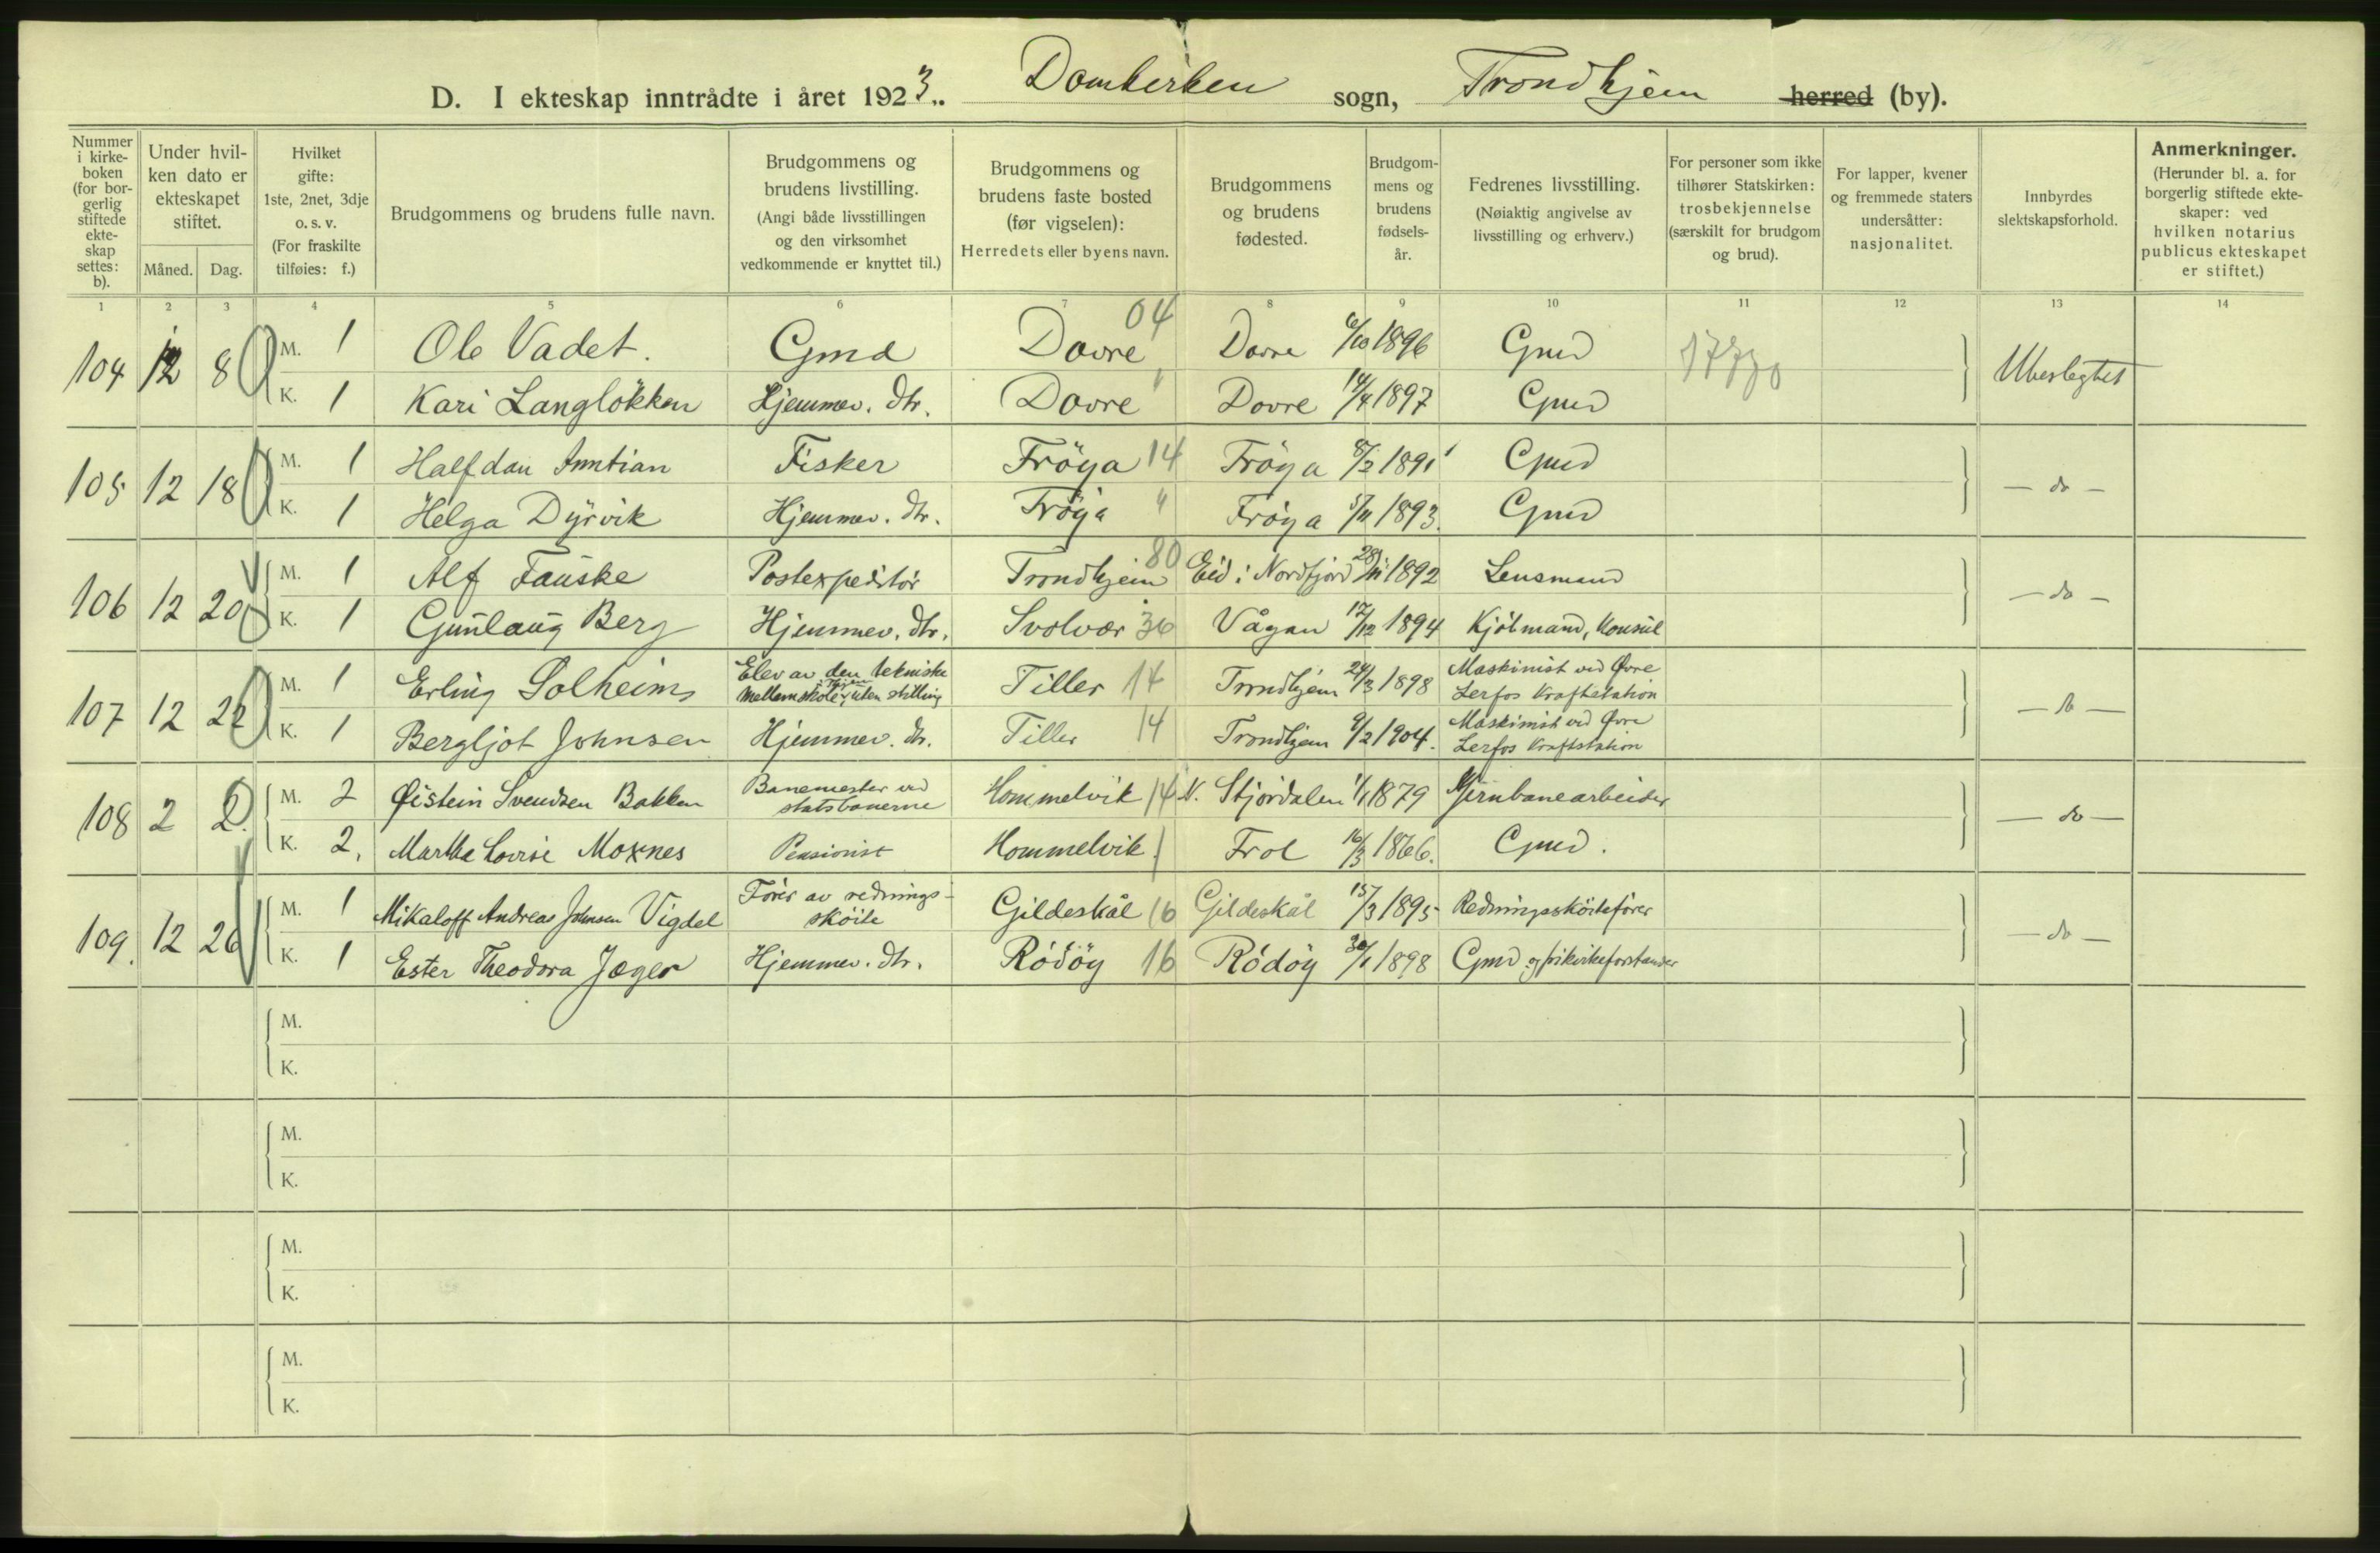 D. I ekteskap inntrådte i året 1923.. Domkirken sogn, Trondhjem herred (by).
Nummer i kirke-boken (for bor-gerlig stiftede ekte-skap settes: b).
Under hvil-ken dato er ekteskapet stiftet.
Måned. Dag.
Hvilket gifte: 1ste, 2net, 3dje o. s. v. (For fraskilte tilføies: f.)
Brudgommens og brudens fulle navn.
Brudgommens og brudens livstilling. (Angi både livsstillingen og den virksomhet vedkommende er knyttet til.)
Brudgommens og brudens faste bosted (før vigselen): Herredets eller byens navn.
Brudgommens og brudens fødested.
Brudgom-mens og brudens fødsels-år.
Fedrenes livsstilling. (Nøiaktig angivelse av livsstilling og erhverv.)
For personer som ikke tilhører Statskirken: trosbekjennelse (særskilt for brudgom og brud).
For lapper, kvener og fremmede staters undersåtter: nasjonalitet.
Innbyrdes slektskapsforhold.
Anmerkninger. (Herunder bl. a. for borgerlig stiftede ekte-skaper: ved hvilken notarius publicus ekteskapet er stiftet.)
1 2 3 4 5 6 7 8 9 10 11 12 13 14
104 12 8 M. 1 Ole Vadet. Gmd Dovre 04 Dovre 6/10 1896 Gmd Ubeslegtet
K. 1 Kari Langlökken Hjemmev. dtr. Dovre " Dovre 14/4 1897 Gmd
105 12 18 M. 1 Halfdan Inntian Fisker Fröya 14 Fröya 8/2 1891 Gmd — do —
K. 1 Helga Dyrvik Hjemmev. dtr. Fröya " Fröya 5/11 1893. Gmd
106 12 20 M. 1 Alf Fauske Postexpeditör Trondhjem 80 Eid i Nordfjord 28/11 1892 Lensmand — do —
K. 1 Gunlaug Berg Hjemmev. dtr. Svolvær 36 Vågan 17/12 1894 Kjöbmand, Konsul
107 12 22 M. 1 Erling Solheim Elev av den tekniske Mellemskole, uten stilling Tiller 14 Trondhjem 24/3 1898 Maskinist ved Øvre Lerfos Kraftstation — do —
K. 1 Bergljot Johnsen Hjemmev. dtr. Tiller 14 Trondhjem 9/2 1904. Maskinist ved Øvre Lerfos Kraftstation
108 2 2. M. 2 Øistein Svendsen Bakken Banemester ved statsbanerne Hommelvik 14 N. Stjördalen 1/1 1879 Jernbanearbeider — do —
K. 2. Martha Lovise Moxnes Pensionist Hommelvik Frol 16/3 1866. Gmd.
109. 12 26 M. 1 Mikaloff Andreas Johnsen Vigdel Förer av rednings-sköite Gildeskål 16 Gildeskål 15/3 1895 Redningssköitefører — do —
K. 1 Ester Theodora Jæger Hjemmev. dtr. Rödöy 16 Rödöy 30/1 1898 Gmd og frikirkeforstander
M.
K.
M.
K.
M.
K.
M.
K.